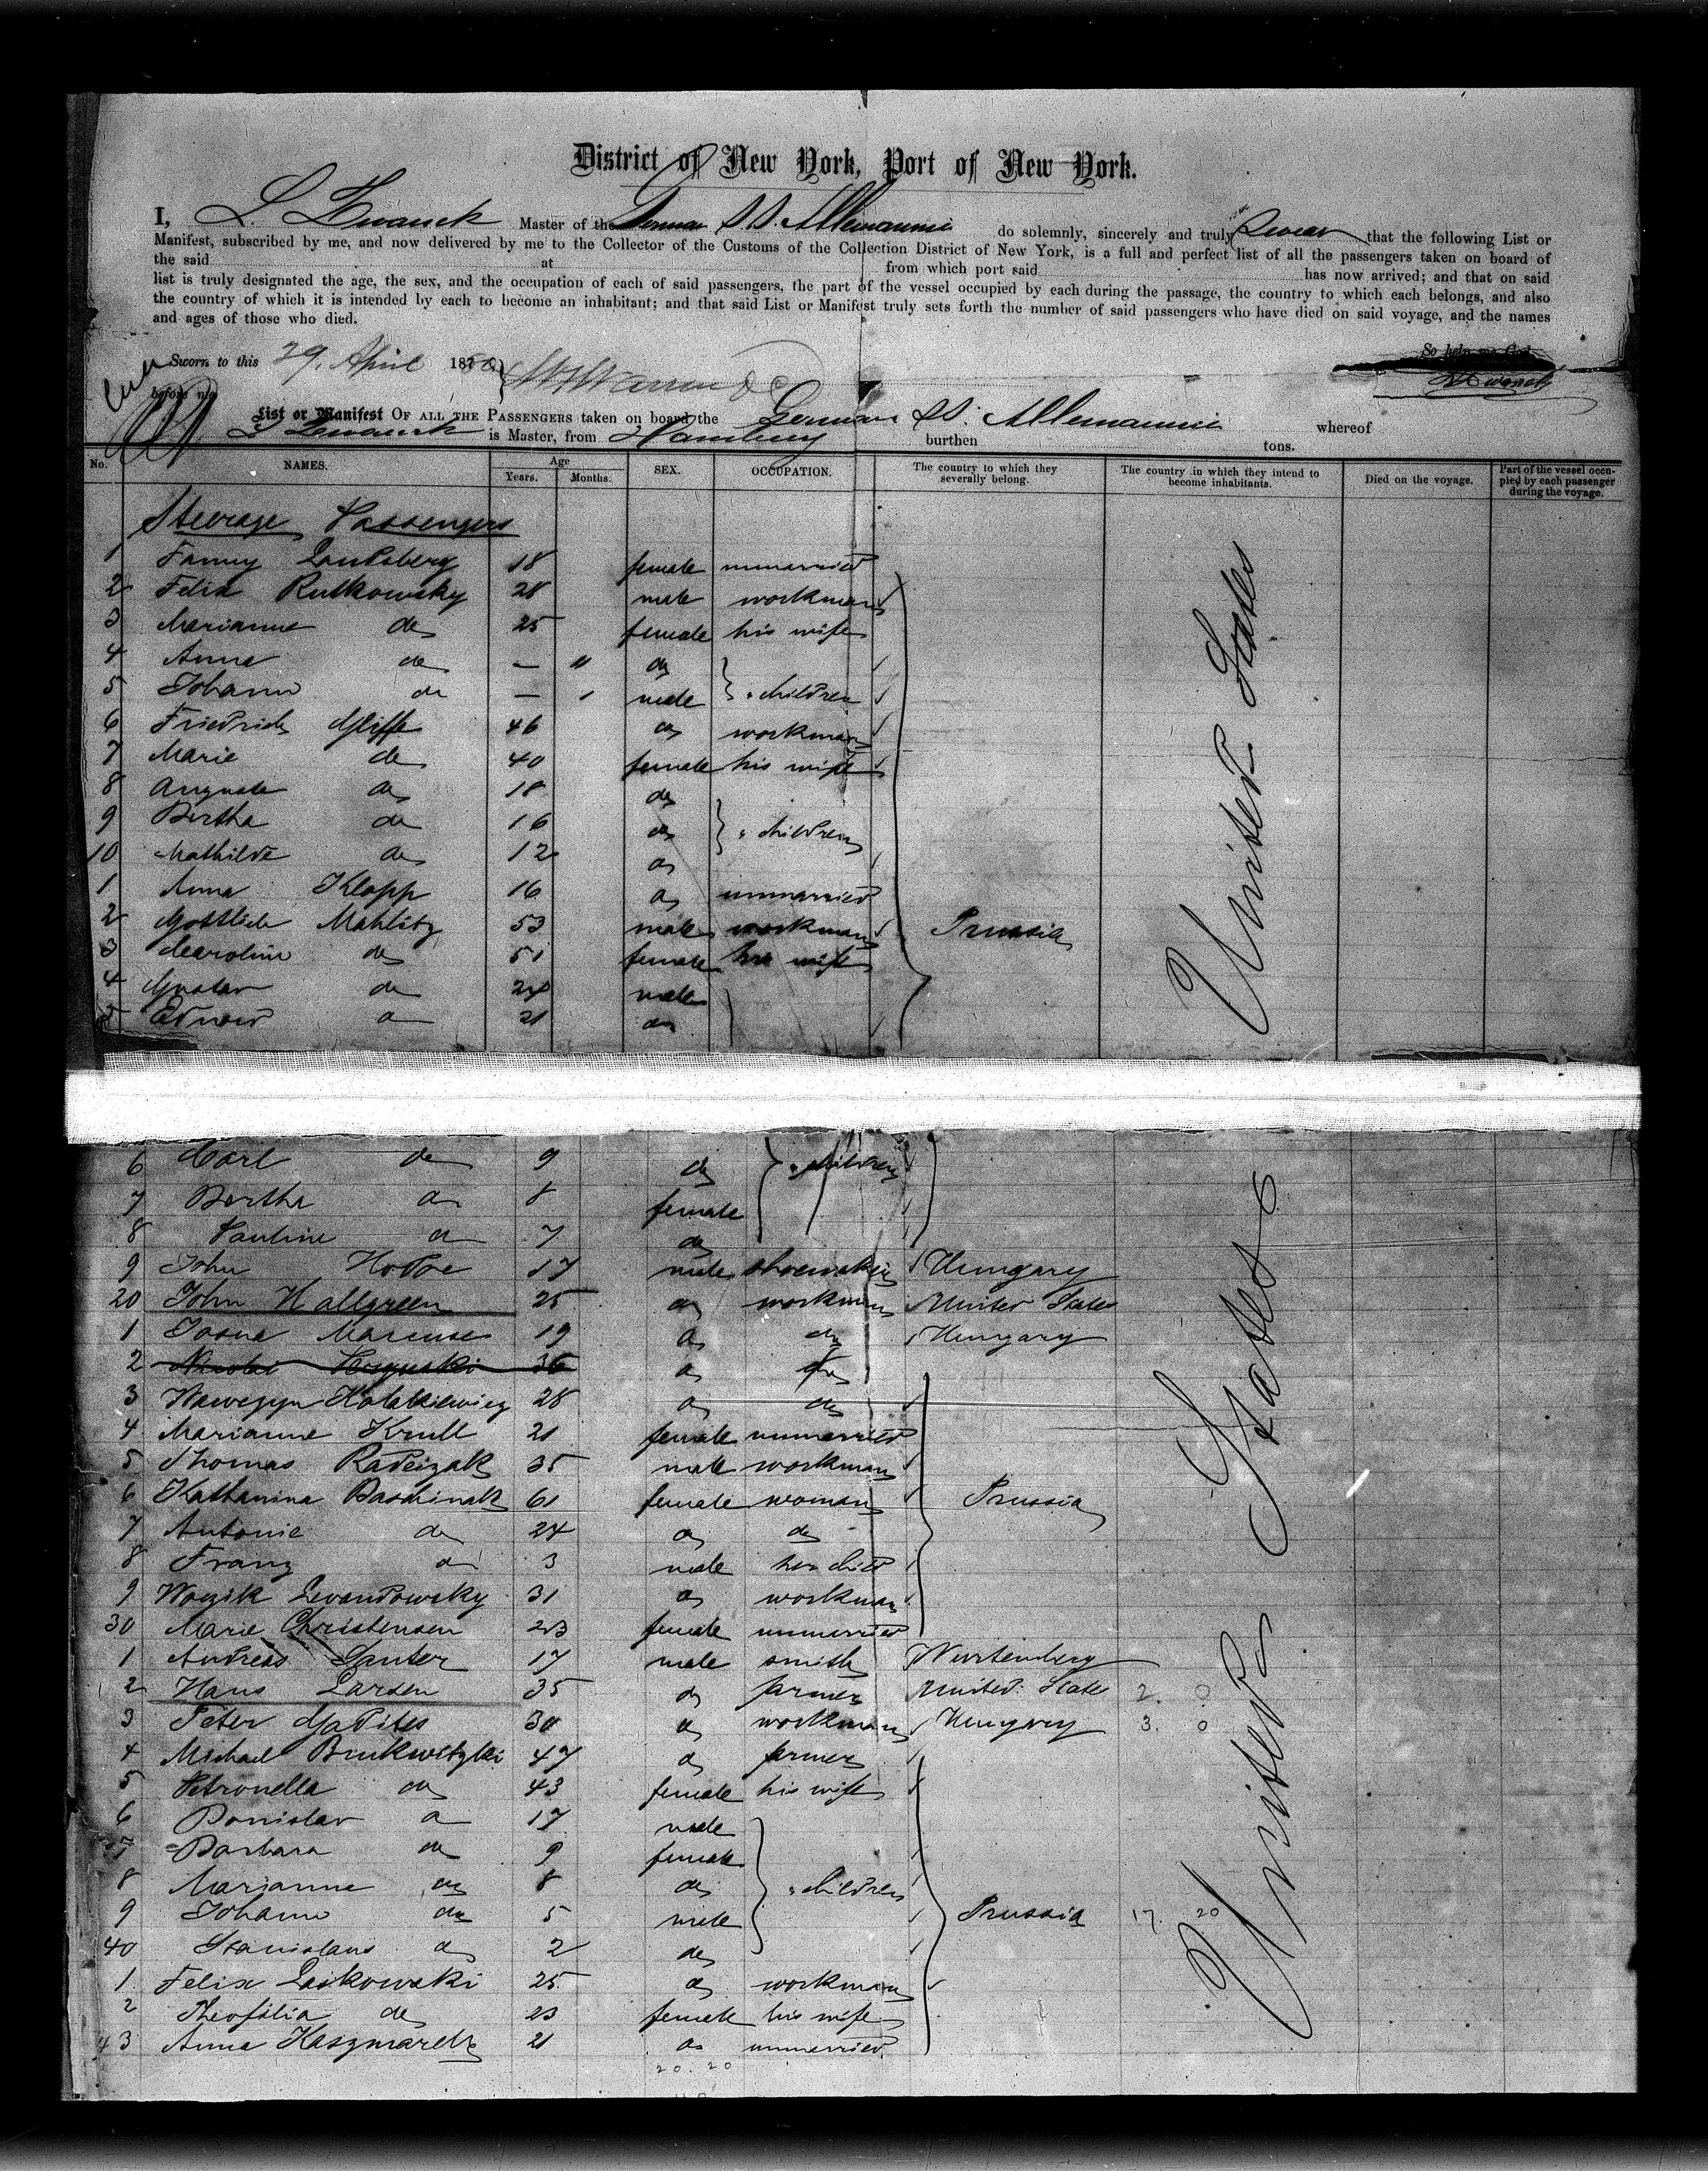 District of New York, Port of New York.
I, L. Master of the German S.S. Allemannia do solemnly, sincerely and truly Swear that the following List or
Manifest, subscribed by me, and now delivered by me to the Collector of the Customs of the Collection District of New York, is a full and perfect list of all the passengers taken on board of
the said at from which port said has now arrived; and that on said
list is truly designated the age, the sex, and the occupation of each of said passengers, the part of the vessel occupied by each during the passage, the country to which each belongs, and also
the country of which it is intended by each to become an inhabitant; and that said List or Manifest truly sets forth the number of said passengers who have died on said voyage, and the names
and ages of those who died.
So help me God.
Sworn to this 29. April 1880
before me
List or Manifest OF ALL THE PASSENGERS taken on board the German SS. Allemannia whereof
is Master, from Hamburg burthen tons.
No. NAMES. Age Years. Months. SEX. OCCUPATION. The country to which they severally belong. The country in which they intend to become inhabitants. Died on the voyage. Part of the vessel occupied by each passenger during the voyage.
Steerage Passengers
1 Fanny Landsberg 18 female unmarried
2 Felix Rutkowsky 28 male workman
3 Marianne do 25 female his wife
4 Anna do — do
5 Johann do — male children
6 Friedrich 46 do workman
7 Marie do 40 female his wife
8 Auguste do 18 do
9 Bertha do 16 do children
10 Mathilde do 12 do
1 Anna Klopp 16 do unmarried
2 Gottlieb Mahlitz 53 male workman Prussia
3 Caroline do 51 female his wife
4 Gustav do 24 male
5 Eduard do 21 do
United States
6 Carl do 9 do children
7 Bertha do 8 female
8 Pauline do 7 do
9 John Hodoe 17 male shoemaker Hungary
20 John Hallgreen 25 do workman United States
1 Josua Marcuse 19 do do Hungary
2 36 do do
3 28 do do
4 Marianne Krull 21 female unmarried
5 Thomas Radeizak 35 male workman
6 Katharina Paschinak 61 female woman Prussia
7 Antonie do 24 do do
8 Franz do 3 male her child
9 Wozik Levandowsky 31 do workman
30 Marie Christensen 23 female unmarried
1 Andreas Sauter 17 male smith Würtemberg
2 Hans Larsen 35 do farmer United States 2. 0
3 Peter 30 do workman Hungary 3. 0
4 Michael Brukwitzki 47 do farmer
5 Petronella do 43 female his wife
6 Bonislav do 17 male
7 Barbara do 9 female
8 Marianne do 8 do children
9 Johann do 5 male Prussia 17. 20
40 Stanislaus do 2 do
1 Felix Laikowski 25 do workman
2 Theofilia do 23 female his wife
43 Anna Kaszmarek 21 do unmarried
20. 20
United States